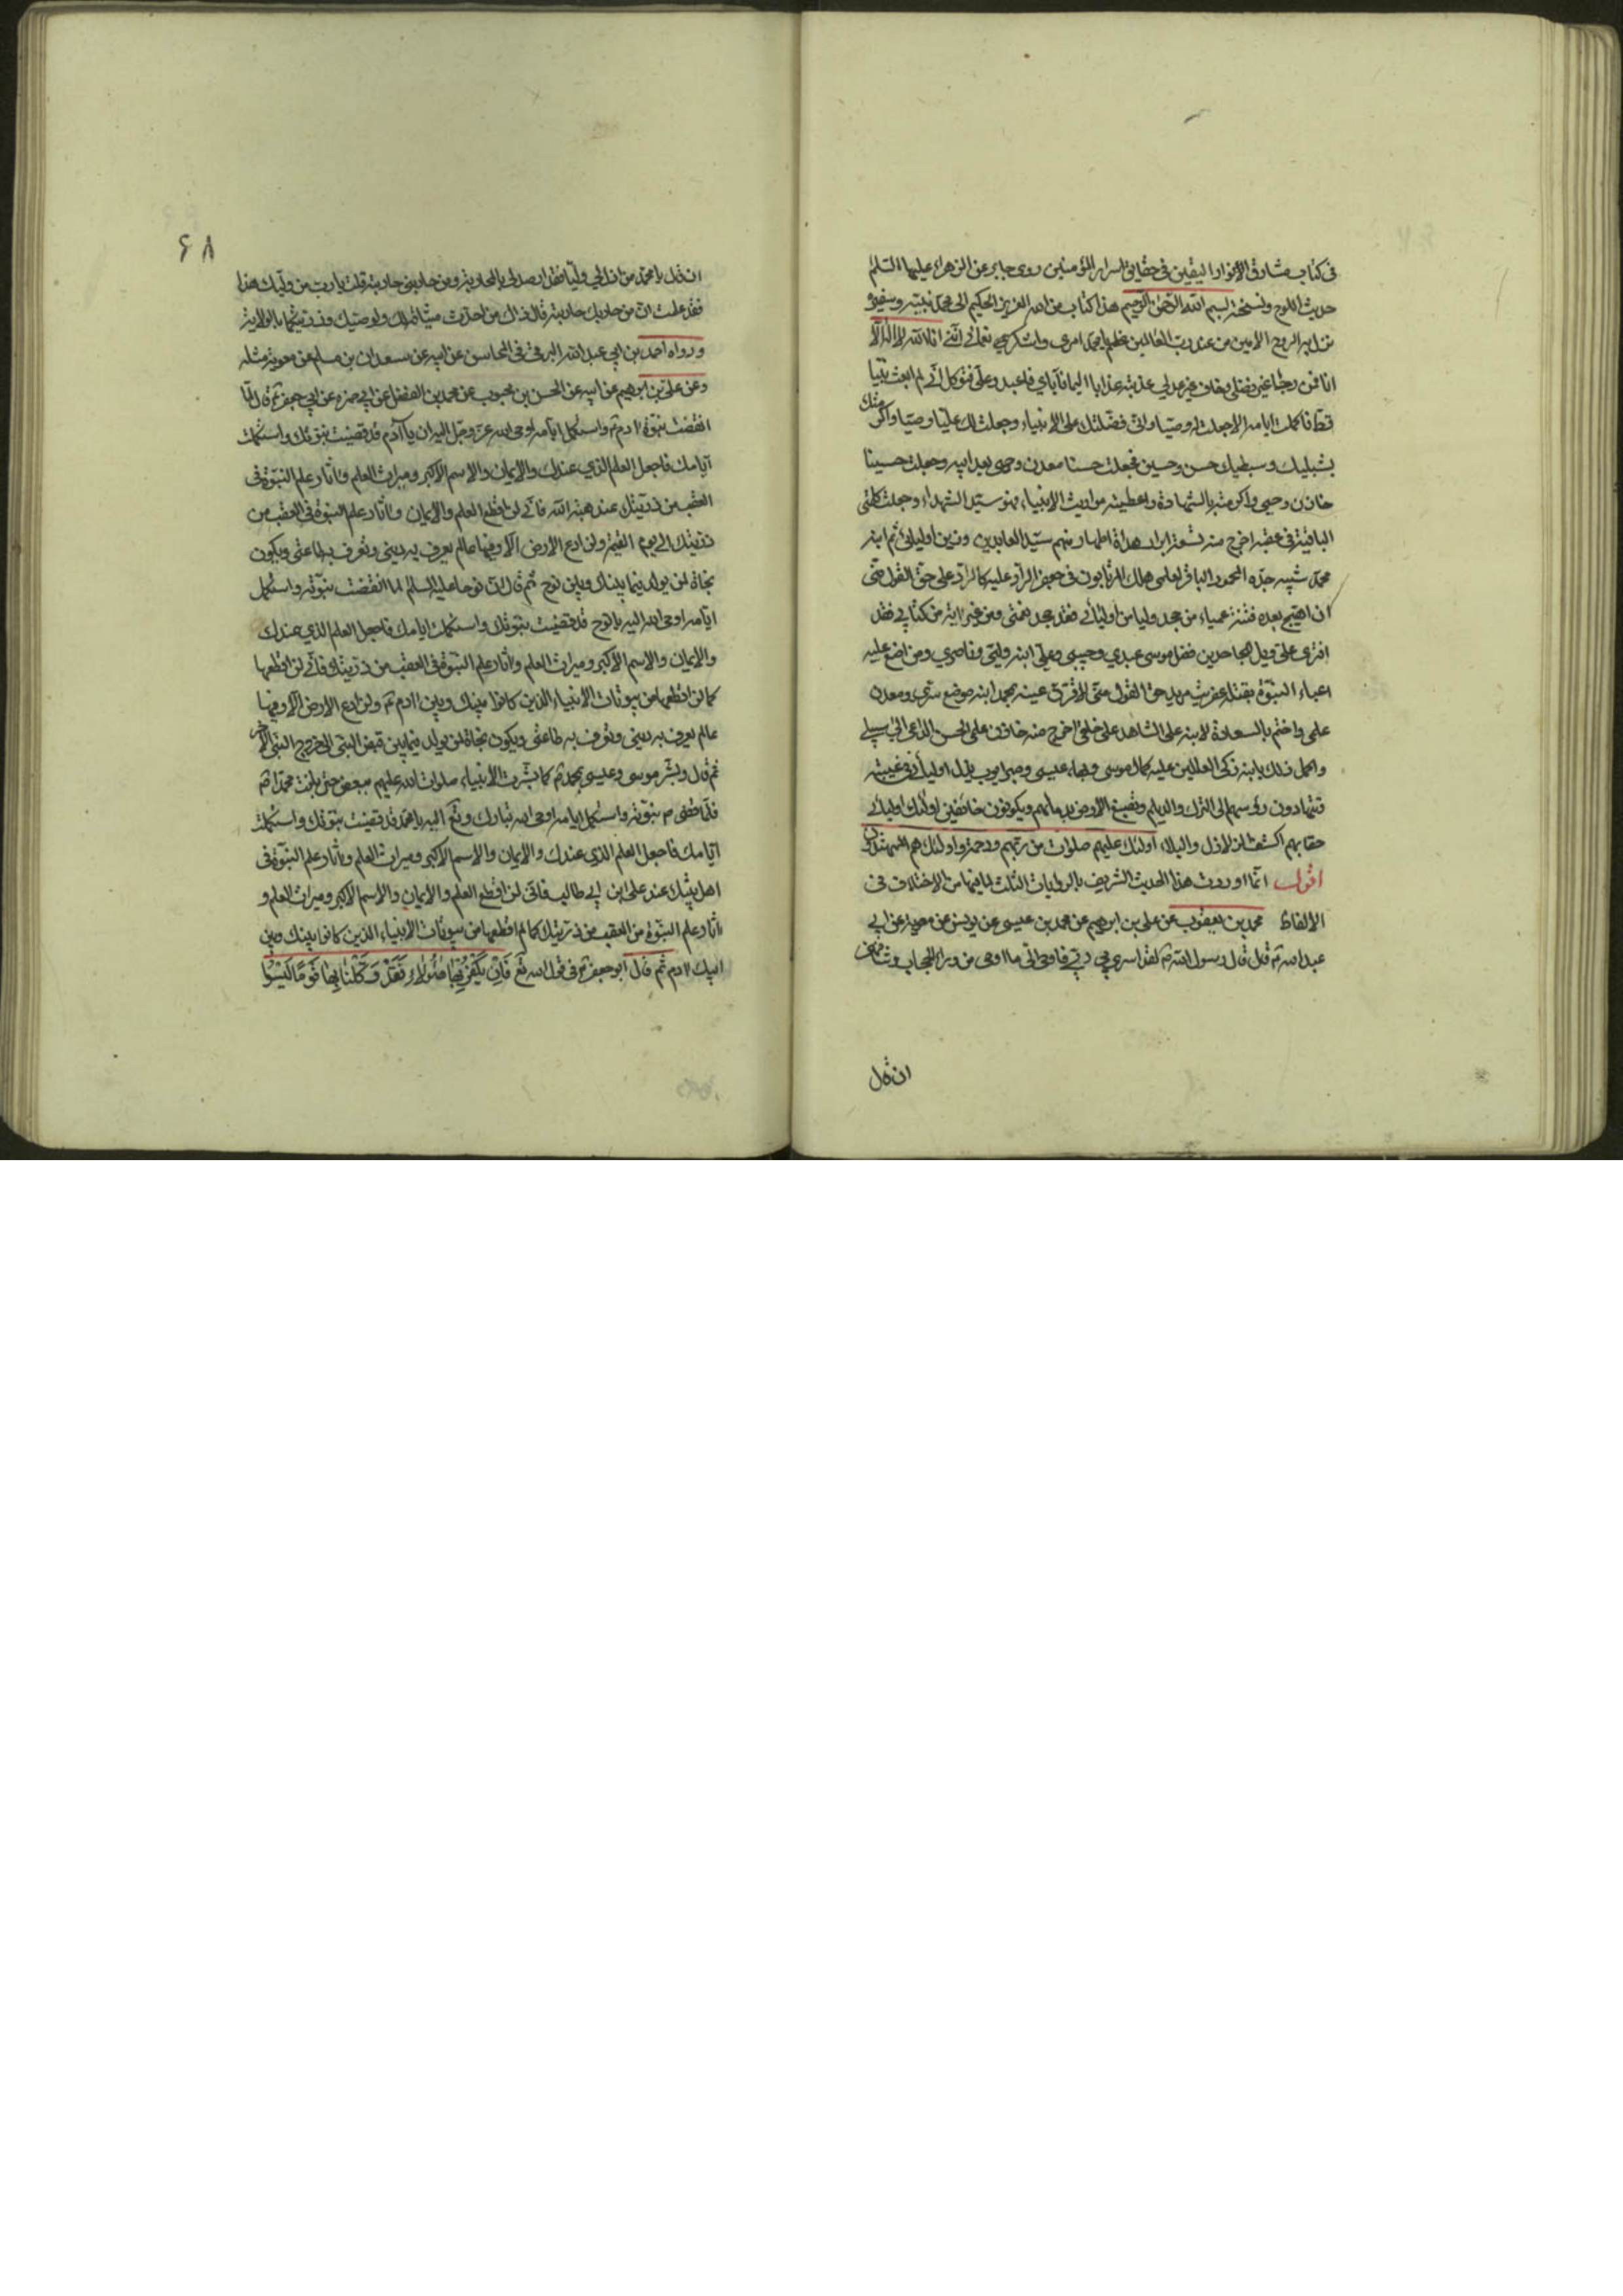 في كتاب مشارق الانوار اليقين في حقايق اسرار المؤمنين روى جابر عن الزهراء عليها السلام
حديث اللوح ونسخته بسم الله الرحمن الرحيم هذا كتاب من الله العزيز الحكيم الى محمد نبيه وسفيره
نزل به الروح الامين من عند رب العالمين عظم يا محمد امري واشكر نعمائي انني انا الله لا اله الا
انا فمن رجا غير فضلي وخاف غير عدلي عذبته عذابا اليما فاياي فاعبد وعلي فتوكل اني لم ابعث نبيا
قط فاكملت ايامه الا جعلت له وصيا واني فضلتك على الانبياء وجعلت لك عليا وصيا واكرمتك
بشبليك وسبطيك حسن وحسين فجعلت حسنا معدن وحيي بعد ابيه وجعلت حسينا
خازن وحيي واكرمته بالشهادة واعطيته مواريث الانبياء فهو سيد الشهداء وجعلت كلمتي
الباقية في عقبه اخرج منه تسعة ابرار هداة اطهار منهم سيد العابدين وزين اوليائي ثم ابنه
محمد شبيه جده المحمود الباقر لعلمي هلك المرتابون في جعفر الراد عليه كالراد علي حق القول مني
ان اهيج بعده فتنة عمياء من جحد وليا من اوليائي فقد جحد نعمتي ومن غير اية من كتابي فقد
افترى علي ويل للجاحدين فضل موسى عبدي وحبيبي وعلي ابنه وليي وناصري ومن اضع عليه
اعباء النبوة يقتله عفريت مريد حق القول مني لاقرن عينه بمحمد ابنه موضع سري ومعدن
علمي واختم بالسعادة لابنه علي الشاهد على خلقي اخرج منه خازن علمي الحسن الداعي الى سبيلي
واكمل ذلك بابنه زكي العالمين عليه كمال موسى وبهاء عيسى وصبر ايوب يذل اوليائي في غيبته
وتتهادون رؤسهم الى الترك والديلم وتصبغ الارض بدمائهم ويكونون خائفين اولئك اوليائي
حقا بهم اكشف الزلازل والبلاء اولئك عليهم صلوات من ربهم ورحمة واولئك هم المهتدون
اقول انما اوردت هذا الحديث الشريف بالروايات الثلث لما فيها من الاختلاف في
الالفاظ محمد بن يعقوب عن علي بن ابرهيم عن محمد بن عيسى عن يونس عن معوية عن ابي
عبد الله ع قال قال رسول الله ص لقد اسرى بي ربي فاوحى الي ما اوحى من وراء الحجاب وشافهني
ان قال
۶۸
ان قال يا محمد من اذل لي وليا فقد ارصد لي بالمحاربة ومن حاربني حاربته قلت يا رب من وليك هذا
فقد علمت ان من حاربك حاربته قال ذاك من اخذت ميثاقه لك ولوصيك وذريتكما بالولاية
ورواه احمد بن ابي عبد الله البرقي في المحاسن عن ابيه عن سعدان بن مسلم عن معوية مثله
وعن علي بن ابرهيم عن ابيه عن الحسن بن محبوب عن محمد بن الفضل عن ابي حمزة عن ابي جعفر ع قال لما
انقضت نبوة ادم ع واستكمل ايامه اوحى الله عز وجل اليه ان يا آدم قد قضيت نبوتك واستكملت
ايامك فاجعل العلم الذي عندك والايمان والاسم الاكبر وميراث العلم واثار علم النبوة في
العقب من ذريتك عند هبة الله فاني لن اقطع العلم والايمان واثار علم النبوة في العقب من
ذريتك الى يوم القيمة ولن ادع الارض الا وفيها عالم يعرف به ديني وتعرف به طاعتي ويكون
نجاة لمن يولد فيما بينك وبين نوح ثم قال ان نوحا عليه السلام لما انقضت نبوته واستكمل
ايامه اوحى الله اليه يا نوح قد قضيت نبوتك واستكملت ايامك فاجعل العلم الذي عندك
والايمان والاسم الاكبر وميراث العلم واثار علم النبوة في العقب من ذريتك فاني لن اقطعها
كما لن اقطعها من بيوتات الانبياء الذين كانوا بينك وبين ادم ع ولن ادع الارض الا وفيها
عالم يعرف به ديني وتعرف به طاعتي ويكون نجاة لمن يولد فيما بين قبض النبي الى خروج النبي الاخر
ثم قال وبشر موسى وعيسى بمحمد ص كما بشرت الانبياء صلوات الله عليهم بعضهم حتى بلغت محمدا ص
فلما قضى ص نبوته واستكمل ايامه اوحى الله تبارك وتع اليه يا محمد قد قضيت نبوتك واستكملت
ايامك فاجعل العلم الذي عندك والايمان والاسم الاكبر وميراث العلم واثار علم النبوة في
اهل بيتك عند علي ابن ابي طالب فاني لن اقطع العلم والايمان والاسم الاكبر وميراث العلم و
اثار علم النبوة من العقب من ذريتك كما لم اقطعها من بيوتات الانبياء الذين كانوا بينك وبين
ابيك ادم ثم قال ابو جعفر ع في قول الله تع فَاِنْ يَكْفُرْ بِهَا هٰؤُلاءِ فَقَدْ وَكَّلْنَا بِهَا قَوْمًا لَيْسُوا